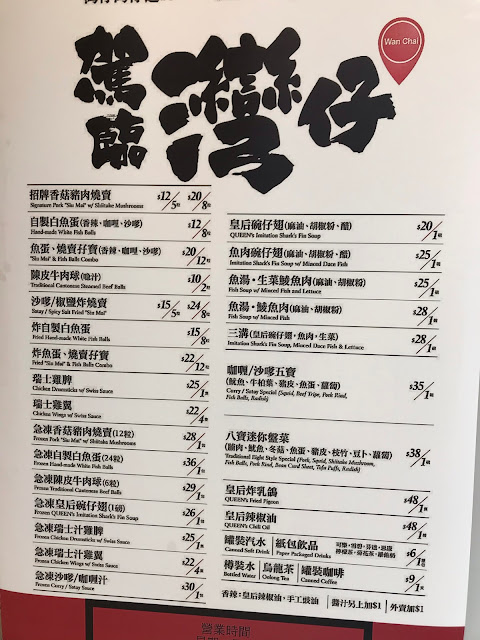 Wan Chai
駕臨
灣仔
招牌香菇豬肉燒賣 $12/5粒 $20/8粒
Signature Pork "Siu Mai" w/ Shiitake Mushrooms
自製白魚蛋(香辣、咖喱、沙嗲) $12/8粒
Hand-made White Fish Balls
魚蛋、燒賣孖寶(香辣、咖喱、沙嗲) $20/12粒
"Siu Mai" & Fish Balls Combo
陳皮牛肉球(喼汁) $10/2粒
Traditional Cantonese Steamed Beef Balls
沙嗲/椒鹽炸燒賣 $15/5粒 $24/8粒
Satay / Spicy Salt Fried "Siu Mai"
炸自製白魚蛋 $15/8粒
Fried Hand-made White Fish Balls
炸魚蛋、燒賣孖寶 $22/12粒
Fried "Siu Mai" & Fish Balls Combo
瑞士雞髀 $25/1隻
Chicken Drumsticks w/ Swiss Sauce
瑞士雞翼 $22/4隻
Chicken Wings w/ Swiss Sauce
急凍香菇豬肉燒賣(12粒) $28/1
Frozen Pork "Siu Mai" w/ Shiitake Mushrooms
急凍自製白魚蛋(24粒) $36/1
Frozen Hand-made White Fish Balls
急凍陳皮牛肉球(6粒) $29/1
Frozen Traditional Cantonese Beef Balls
急凍皇后碗仔翅(1磅) $26/1
Frozen QUEEN's Imitation Shark's Fin Soup
急凍瑞士汁雞髀 $25/1
Frozen Chicken Drumsticks w/ Swiss Sauce
急凍瑞士汁雞翼 $22/4
Frozen Chicken Wings w/ Swiss Sauce
急凍沙嗲/咖喱汁 $30/1
Frozen Curry / Satay Sauce
皇后碗仔翅(麻油、胡椒粉、醋) $20/1碗
QUEEN's Imitation Shark's Fin Soup
魚肉碗仔翅(麻油、胡椒粉、醋) $25/1碗
Imitation Shark's Fin Soup w/ Minced Dace Fish
魚湯・生菜鯪魚肉(麻油、胡椒粉) $25/1碗
Fish Soup w/ Minced Fish and Lettuce
魚湯・鯪魚肉(麻油、胡椒粉) $28/1碗
Fish Soup w/ Minced Fish
三溝(皇后碗仔翅・魚肉・生菜) $28/1碗
Imitation Shark's Fin, Minced Dace Fish & Lettuce
咖喱/沙嗲五寶 $35/1碗
(魷魚、牛柏葉、豬皮、魚蛋、蘿蔔)
Curry / Satay Special (Squid, Beef Tripe, Pork Rind,
Fish Balls, Radish)
八寶迷你盤菜 $38/1碗
(腩肉、魷魚、冬菇、魚蛋、豬皮、枝竹、豆卜、蘿蔔)
Traditional Eight Style Special (Pork, Squid, Shiitake Mushroom,
Fish Balls, Pork Rind, Bean Curd Sheet, Tofu Puffs, Radish)
皇后炸乳鴿 $48/1
QUEEN's Fried Pigeon
皇后辣椒油 $48/1
QUEEN's Chili Oil
罐裝汽水 紙包飲品 $6/1
Canned Soft Drink Paper Packaged Drinks
樽裝水 烏龍茶 罐裝咖啡 $9/1
Bottled Water Oolong Tea Canned Coffee
香辣:皇后辣椒油,手工豉油 醬汁另上加$1 外賣加$1
營業時間